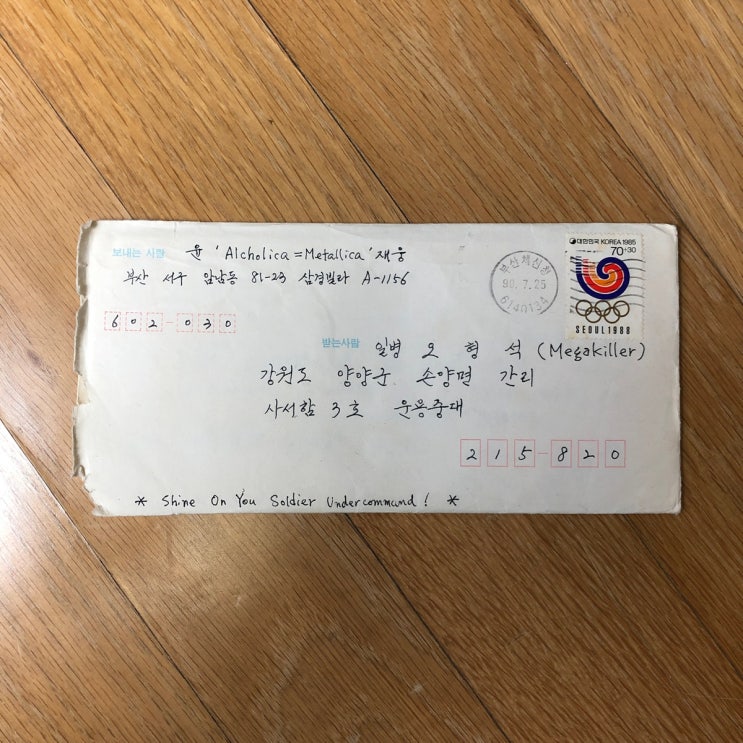 보내는 사람 윤 'Alcholica=Metallica' 재웅
부산 서구 암남동 81-23 삼경빌라 A-1156
602-030
대한민국 KOREA 1985
70+30
SEOUL 1988
부산체신청
90.7.25
6140134
받는사람 일병 오형석 (Megakiller)
강원도 양양군 손양면 간리
사서함 3호 운용중대
215-820
* Shine On You Soldier Undercommand! *